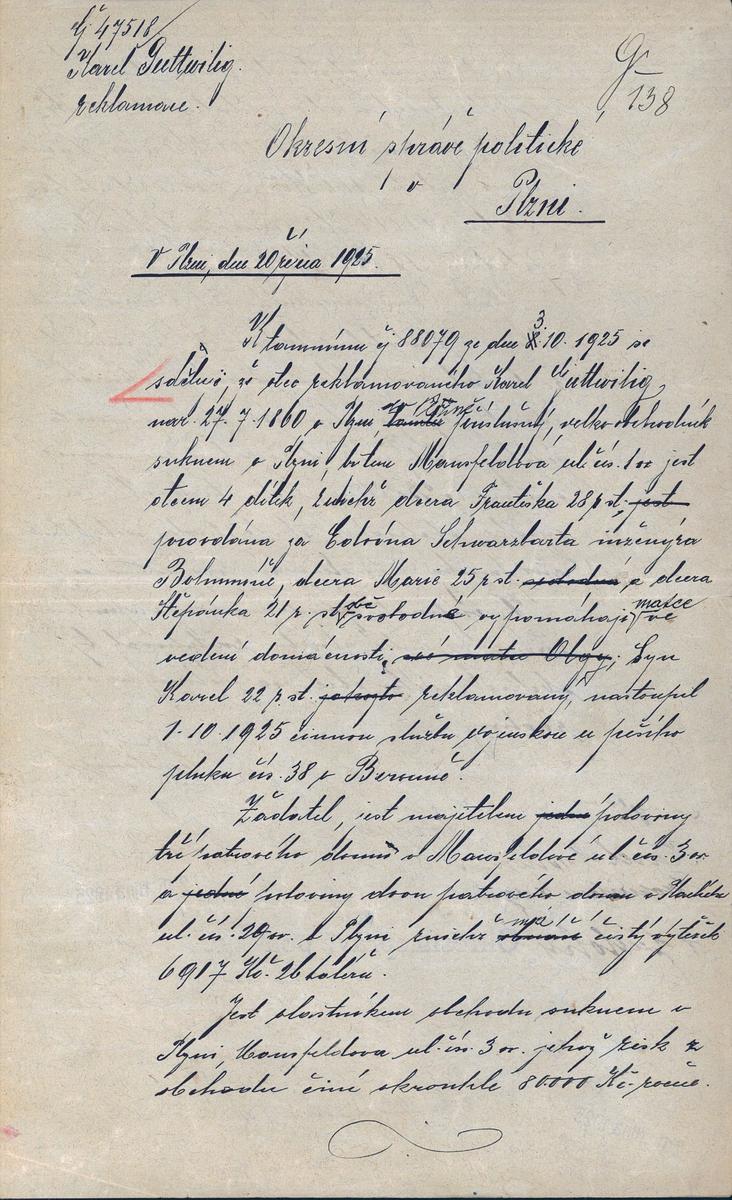 Čj 47518/
Karel Guttwilig.
reklamace.
G
138
Okresní správě politické
v
Plzni.
V Plzni, dne 20 října 1925.
K tamnímu čj 88079 ze dne 3. 10. 1925 se
sděluje, že otec reklamovaného Karel Guttwilig,
nar. 27. 7. 1860 v Plzni, do Plzně příslušný, velkoobchodník
suknem v Plzni, bytem Mansfeldova ul. čís. 1 or jest
otcem 4 dítek, z nichž dcera Františka 28 r st. jest
provdána za Edvína Schwarzbarta inženýra
Bohumíně, dcera Marie 25 r st. svobodná a dcera
Štěpánka 21 r. st. obě svobodné, vypomáhají matce ve
vedení domácnosti, své matce Olgy; Syn
Karel 22 r st. jakožto reklamovaný, nastoupil
1. 10. 1925 činnou službu vojenskou u pěšího
pluku čís. 38 v Berouně.
Žadatel, jest majitelem jedné poloviny
tří patrového domu v Mansfeldově ul čís. 3 or
a jedné poloviny dvou patrového domu v
ul. čís. 29 or. v Plzni z nichž má čistý výtěžek
6917 Kč. 26 haléřů.
Jest vlastníkem obchodu suknem v
Plzni, Mansfeldova ul. čís. 3 or. jehož zisk z
obchodu činí okrouhle 80000 Kč ročně.